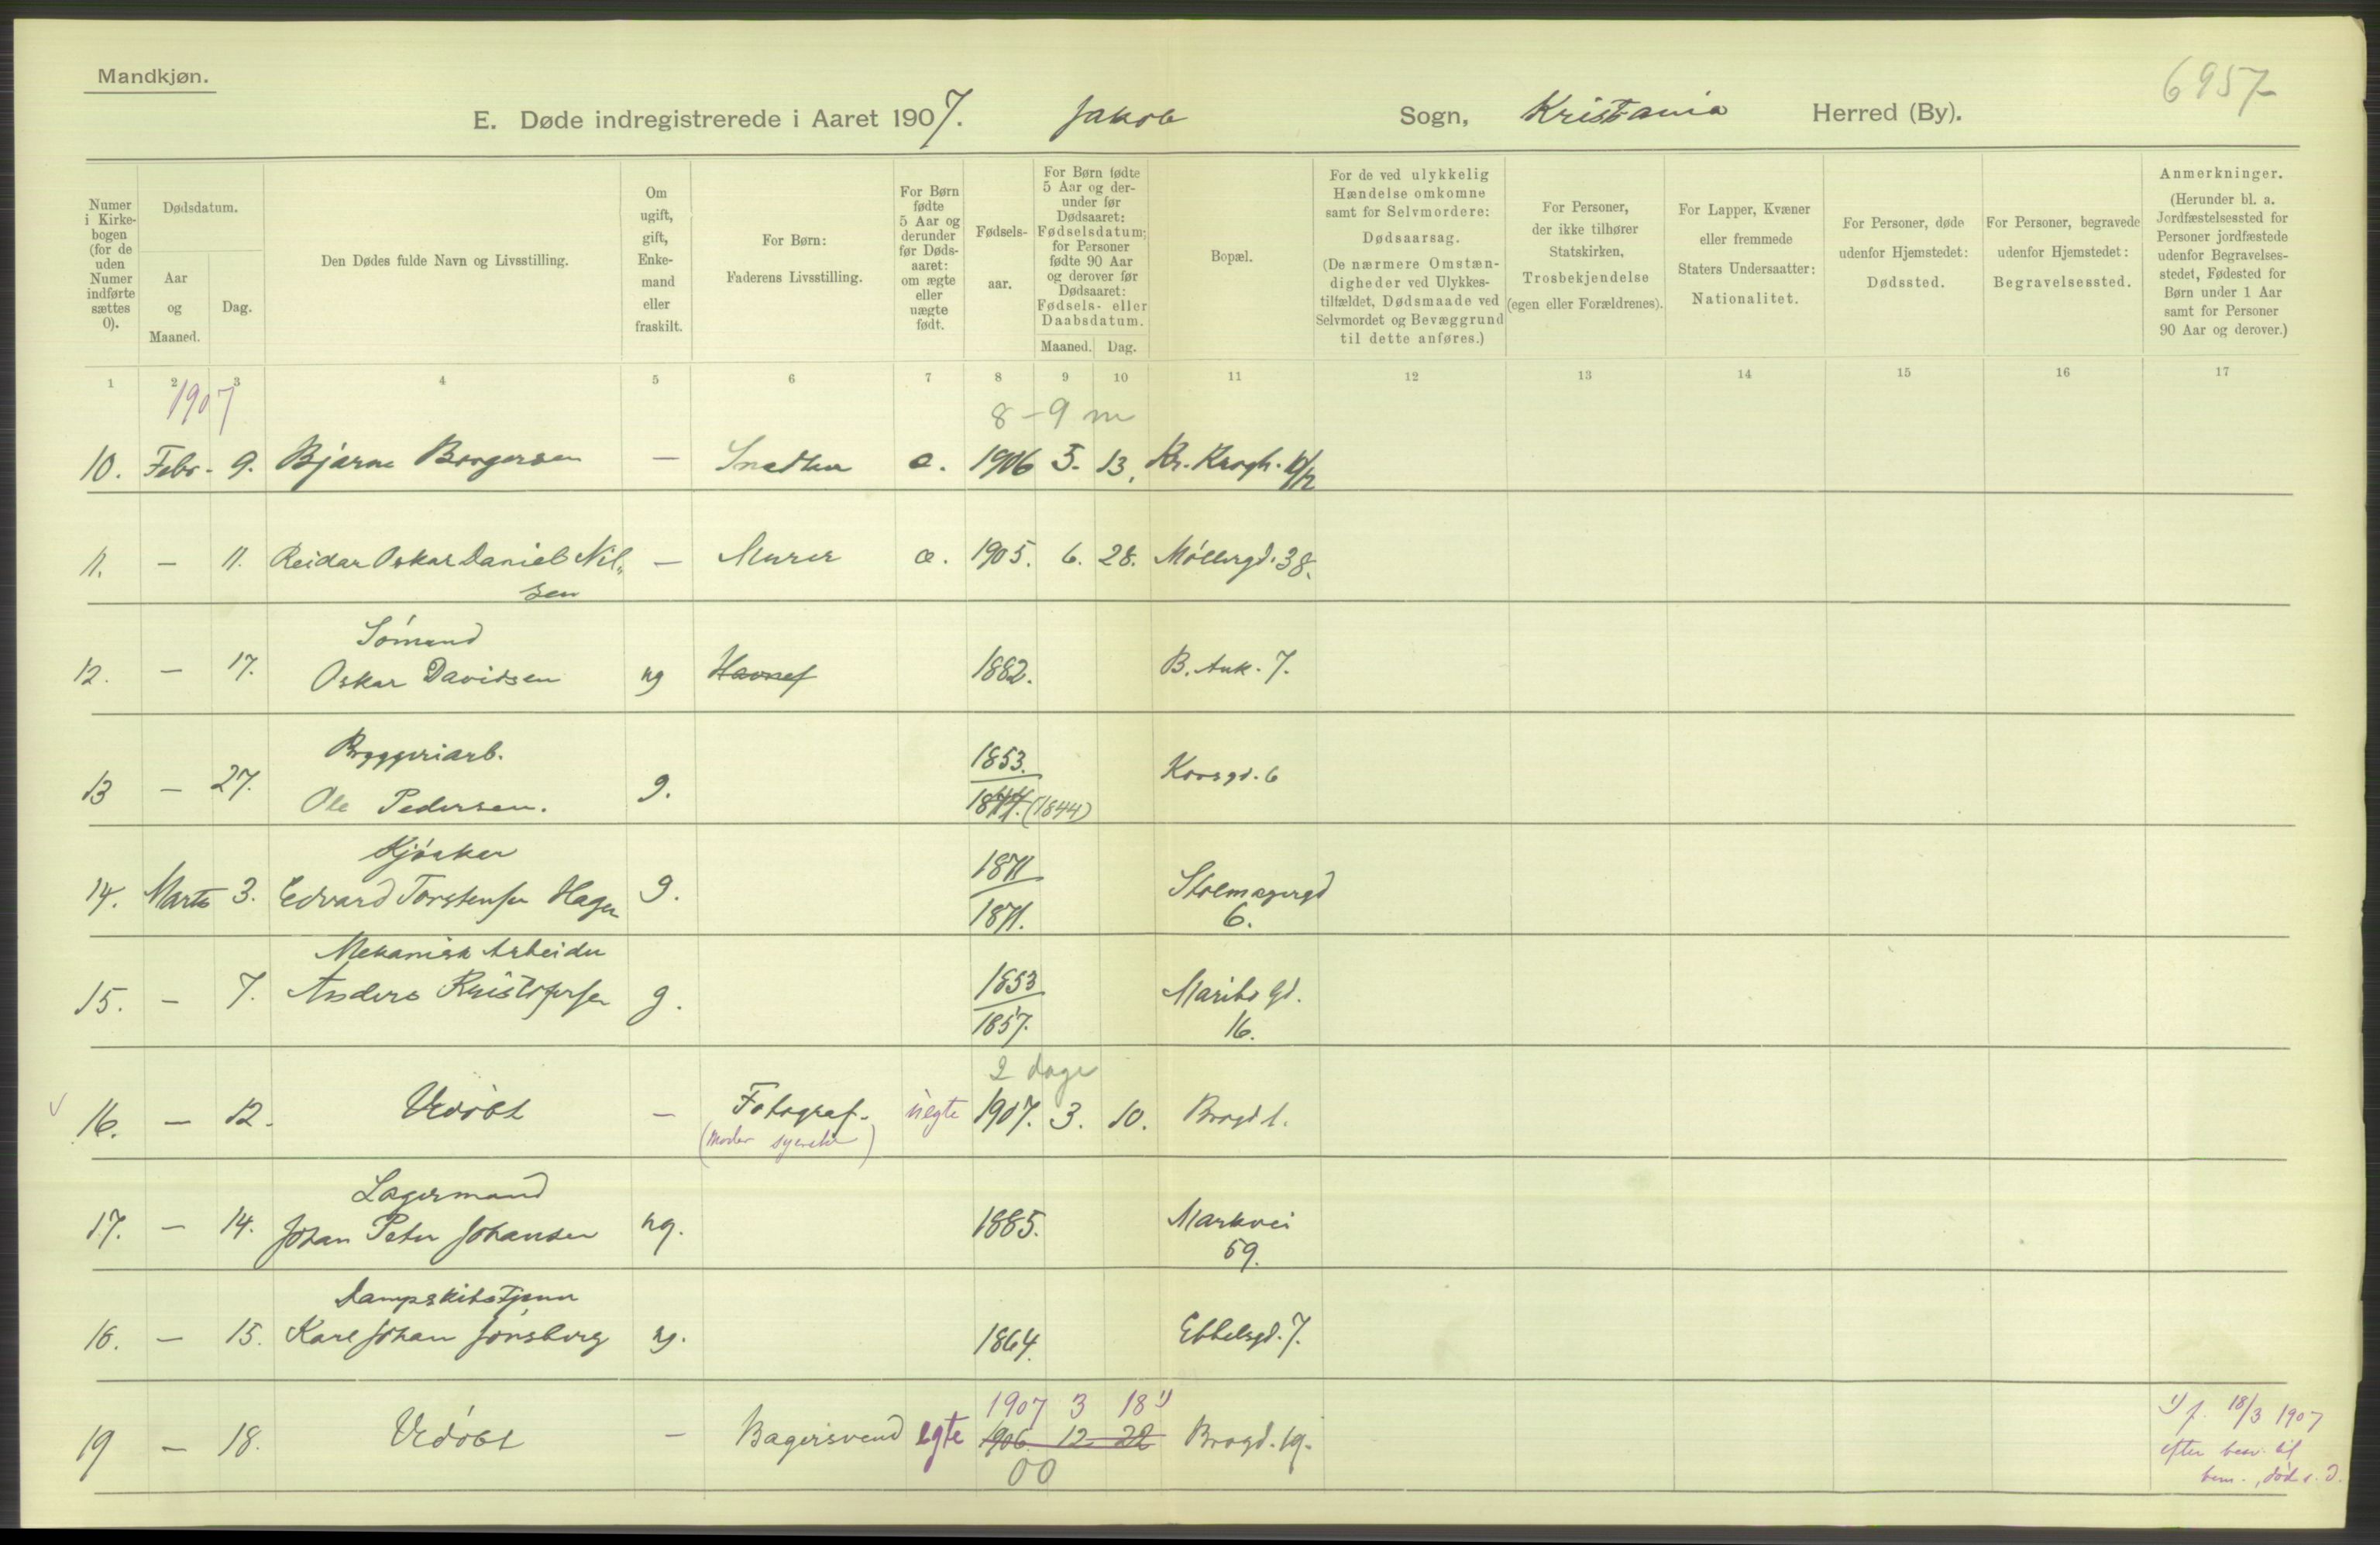 Mandkjøn.
6957
E. Døde indregistrerede i Aaret 1907. Jakob Sogn, Kristania Herred (By).
Numer i Kirkebogen (for de uden Numer indførte sættes 0).
Dødsdatum.
Aar og Maaned.
Dag.
Den Dødes fulde Navn og Livsstilling.
Om ugift, gift, Enkemand eller fraskilt.
For Børn: Faderens Livsstilling.
For Børn fødte 5 Aar og derunder før Dødsaaret: om ægte eller uægte født.
Fødselsaar.
For Børn fødte 5 Aar og derunder før Dødsaaret: Fødselsdatum; for Personer fødte 90 Aar og derover før Dødsaaret: Fødsels- eller Daabsdatum.
Maaned. Dag.
Bopæl.
For de ved ulykkelig Hændelse omkomne samt for Selvmordere: Dødsaarsag. (De nærmere Omstændigheder ved Ulykkestilfældet, Dødsmaade ved Selvmordet og Bevæggrund til dette anføres.)
For Personer, der ikke tilhører Statskirken, Trosbekjendelse (egen eller Forældrenes).
For Lapper, Kvæner eller fremmede Staters Undersaatter: Nationalitet.
For Personer, døde udenfor Hjemstedet: Dødssted.
For Personer, begravede udenfor Hjemstedet: Begravelsessted.
Anmerkninger. (Herunder bl. a. Jordfæstelsessted for Personer jordfæstede udenfor Begravelsesstedet, Fødested for Børn under 1 Aar samt for Personer 90 Aar og derover.)
1 2 3 4 5 6 7 8 9 10 11 12 13 14 15 16 17
1907
8-9 m
10. Febr - 9. Bjarne Borgersen — Snedker e. 1906 5. 13, Kr. Krogh.
11. — 11. Reidar Oskar Daniel Nil- — Murer e. 1905. 6. 28. Møllergd. 38.
sen
Sømand
12. — 17. Oskar Davidsen ug 1882. B. Ank. 7.
Bryggeriarb. 1853.
13 — 27. Ole Pedersen. g. (1844) Korsgd. 6
Kjøsker 1871
14. Marts 3. Edvard Torstensen Hagen g. 1871. Stolmagergd
6.
Mekanisk Arbeider
15. — 7. Anders Kristofersen g. 1853 Maribo gd.
1857. 16.
2 dage
16. — 12. Udøbt — Fotograf. uegte 1907. 3. 10. Brogd 1.
(Moder syerske)
Lagermand
17. — 14. Johan Peter Johansen ug. 1885. Markvei
59.
Dampskibstjener
18. — 15. Karl Johan Jonsborg ug. 1864. Ebbelsgd. 7.
1907 3 18 1)
19 — 18. Udøbt — Bagersvend egte 1906 12 22 Brogd. 19.
00
1) f. 18/3 1907
efter
død s. D.